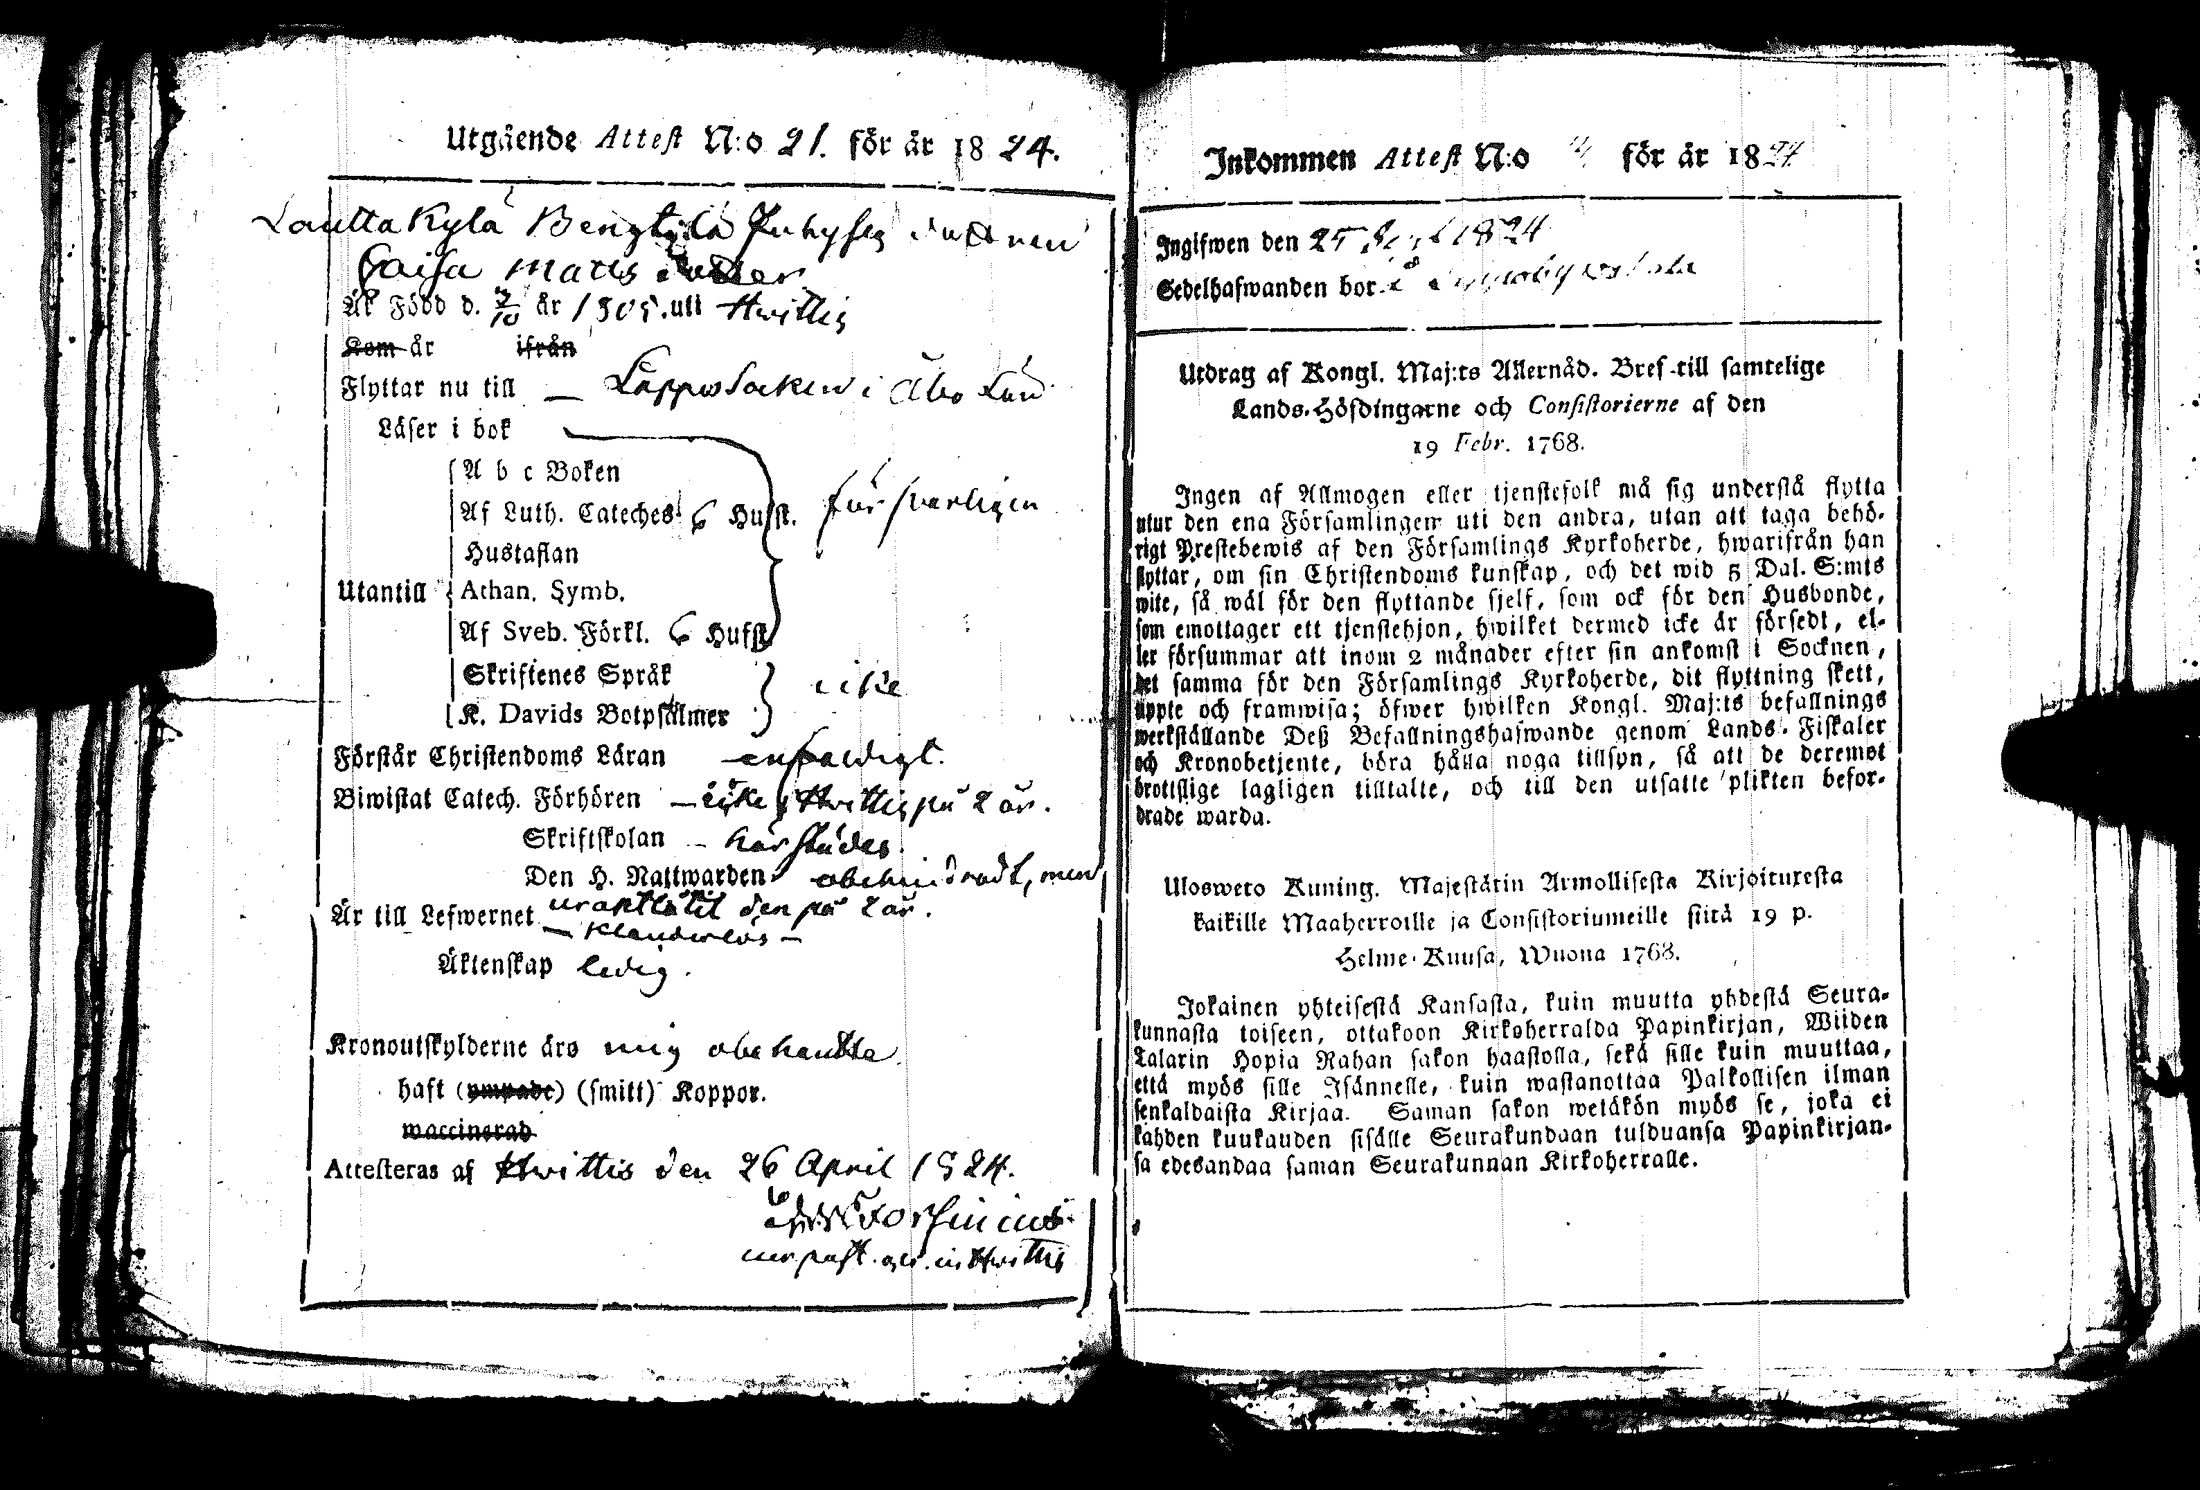 Utgående Attest N:o 21. för år 1824.
Lauttakylä Bengtilä Inhyses dottren
Caisa Matts dotter
Är Född d. 2/10 år 1805. uti Hwittis
Kom år ifrån
Flyttar nu till — Lappo Socken i Åbo Län
Läser i bok
A b c Boken
Af Luth. Cateches 6 Hufst. försvarligen
Hustaflan
Utantill Athan. Symb.
Af Sveb. Förkl. 6 Hufst.
Skriftenes Språk icke
K. Davids Botpsalmer
Förstår Christendoms Läran enfaldigt.
Biwistat Catech. Förhören — icke i Hwittis på 2 år.
Skriftskolan - härstädes.
Den H. Nattwarden obehindradt, men
uraktlåtit den på 2 år.
Är till Lefwernet — klanderlös —
Äktenskap ledig.
Kronoutskylderne äro mig obekanta
haft (ympade) (smitt) Koppor.
waccinerad
Attesteras af Hwittis den 26 April 1824.
Forsinius
Hwittis
Inkommen Attest N:o för år 1824
Ingifwen den 25 Sept 1824
Sedelhafwanden bor
Utdrag af Kongl. Maj:ts Allernåd. Bref till samtelige
Lands-Höfdingarne och Consistorierne af den
19 Febr. 1768.
Ingen af Allmogen eller tjenstefolk må sig understå flytta
utur den ena Församlingen uti den andra, utan att taga behö-
rigt Prestebewis af den Församlings Kyrkoherde, hwarifrån han
flyttar, om sin Christendoms kunskap, och det wid 5 Dal. S:mts
wite, så wäl för den flyttande sjelf, som ock för den Husbonde,
som emottager ett tjenstehjon, hwilket dermed icke är försedt, el-
ler försummar att inom 2 månader efter sin ankomst i Socknen,
det samma för den Församlings Kyrkoherde, dit flyttning skett,
uppte och framwisa; öfwer hwilken Kongl. Maj:ts befallnings
werkställande Deß Befallningshafwande genom Lands-Fiskaler
och Kronobetjente, böra hålla noga tillsyn, så att de deremot
brottslige lagligen tilltalte, och till den utsatte plikten befor-
drade warda.
Ulosweto Kuning. Majestätin Armollisesta Kirjoituxesta
kaikille Maaherroille ja Consistoriumeille siitä 19 p.
Helme-Kuusa, Wuona 1768.
Jokainen yhteisestä Kansasta, kuin muutta yhdestä Seura-
kunnasta toiseen, ottakoon Kirkoherralda Papinkirjan, Wiiden
Talarin Hopia Rahan sakon haastolla, sekä sille kuin muuttaa,
että myös sille Isännelle, kuin wastanottaa Palkollisen ilman
senkaldaista Kirjaa. Saman sakon wetäkön myös se, joka ei
kahden kuukauden sisälle Seurakundaan tulduansa Papinkirjan-
sa edesandaa saman Seurakunnan Kirkoherralle.